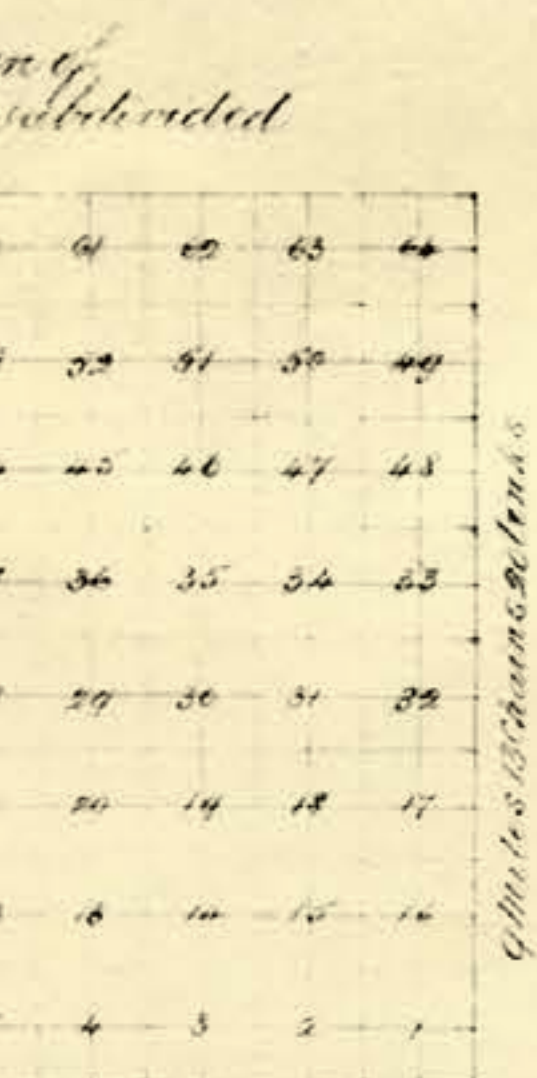 subdivided
61 62 63 64
52 51 50 49
45 46 47 48
36 35 34 33
29 30 31 32
20 19 18 17
13 14 15 16
4 3 2 1
9 miles 13 chains 20 links